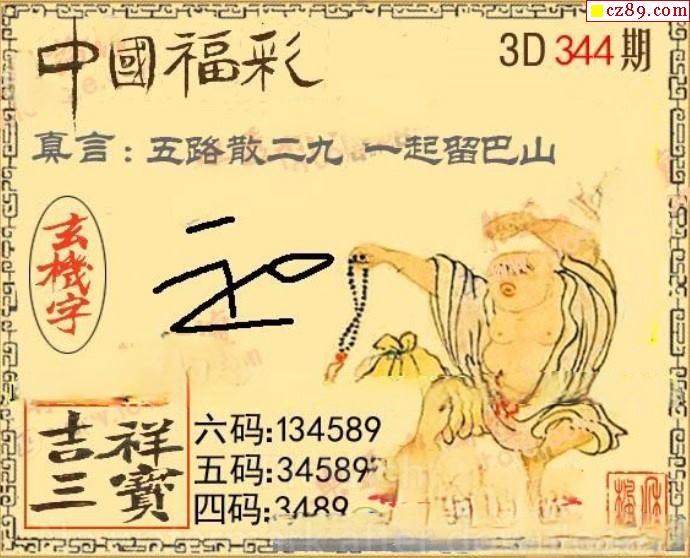 cz89.com
中國福彩
3D 344 期
真言：五路散二九 一起留巴山
玄機字
吉祥
三寶
六码:134589
五码:34589
四码:3489